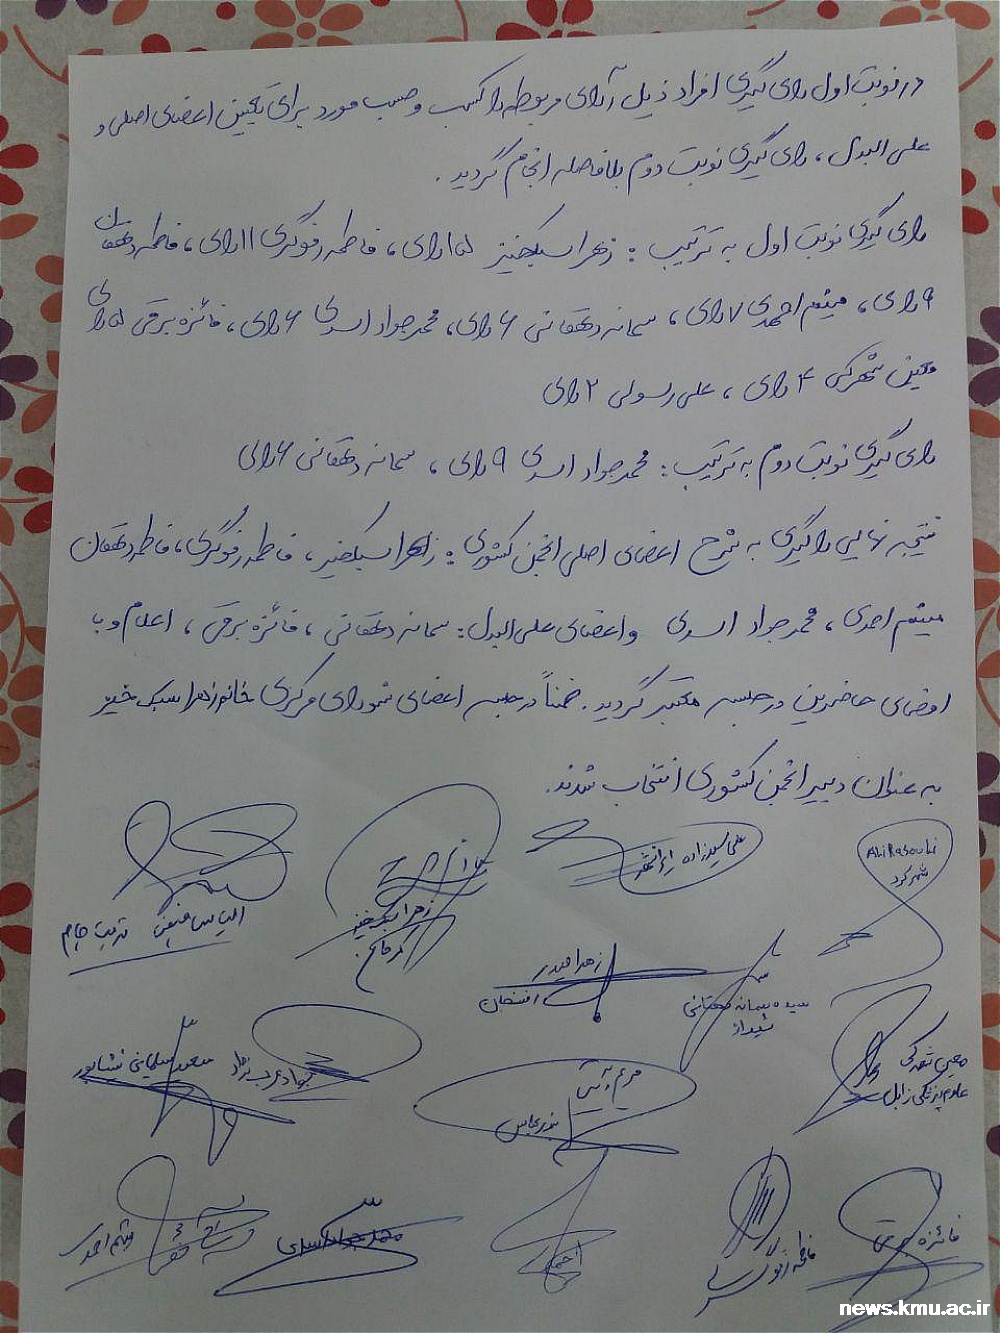 در نوبت اول رای گیری افراد ذیل آرای مربوطه را کسب و حسب مورد برای تعیین اعضای اصلی و
علی البدل ، رای گیری نوبت دوم بلافاصله انجام گردید .
رای گیری نوبت اول به ترتیب : زهرا سبکخیز ۱۵ رای ، فاطمه رفوگری ۱۱ رای ، فاطمه دهقان
۹ رای ، میثم احمدی ۷ رای ، سمانه دهقانی ۶ رای ، محمد جواد اسدی ۶ رای ، فائزه برقی ۵ رای
معین شهرکی ۴ رای ، علی رسولی ۲ رای
رای گیری نوبت دوم به ترتیب : محمد جواد اسدی ۹ رای ، سمانه دهقانی ۶ رای
نتیجه نهایی رایگیری به شرح اعضای اصلی انجمن کشوری : زهرا سبکخیز ، فاطمه رفوگری ، فاطمه دهقان
میثم احمدی ، محمد جواد اسدی و اعضای علی البدل : سمانه دهقانی ، فائزه برقی ، اعلام و با
امضای حاضرین در جلسه معتبر گردید . ضمناً در جلسه اعضای شورای مرکزی خانم زهرا سبک خیز
به عنوان دبیر انجمن کشوری انتخاب شدند .
Ali Rasouli
شهرکرد
علی سعیدزاده ایرانشهر
زهرا سبکخیز
کرمان
الیاس تربت جام
زهرا حیدر
سیده سمانه دهقانی
شیراز
معین شهرکی
علوم پزشکی زابل
مریم
بندرعباس
جواد
سعید سلیمانی نشابور
فائزه برقی
فاطمه رفوگر
محمد جواد اسدی
میثم احمدی
news.kmu.ac.ir